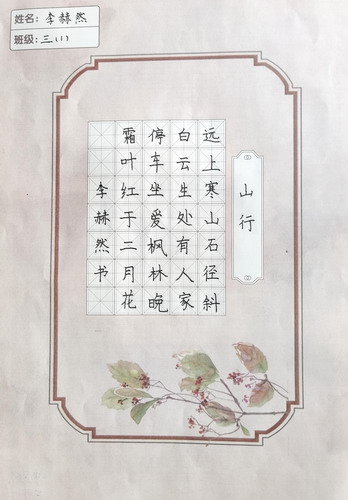 姓名: 李赫然
班级: 三（1）
山行
远上寒山石径斜
白云生处有人家
停车坐爱枫林晚
霜叶红于二月花
李赫然书